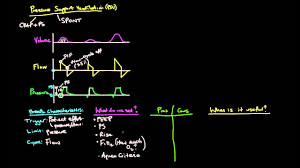 Pressure Support Ventilation (PSV)
CPAP + PS SPONT
Volume
Flow
Pressure
Breath Characteristics:
Trigger: Patient effort
Limit: Pressure
Cycle: Flow
What do we set?
• PEEP
• PS
• Rise
• FiO2
• Apnea Criteria
Pros Cons
When is it useful?